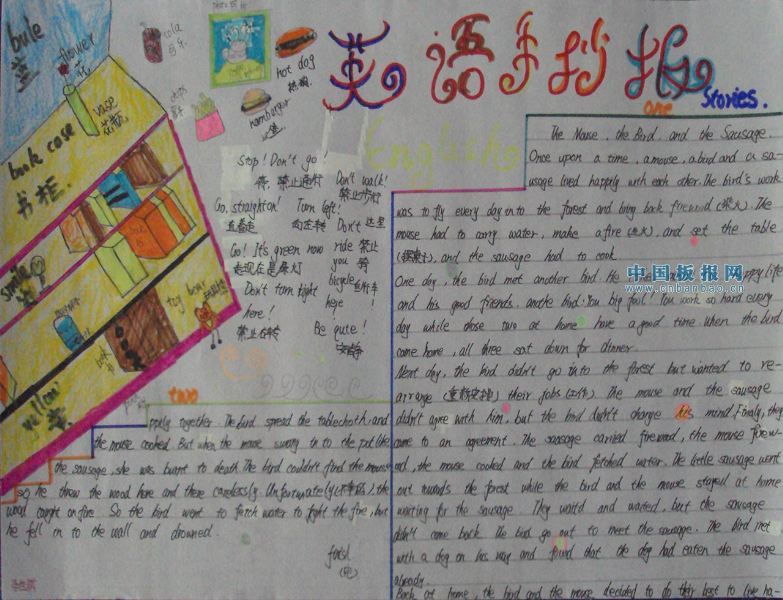 英语手抄报
one
Stories.
English
bule
蓝
flower
花
vase
花瓶
book case
书柜.
cola
可乐
hot dog
热狗
hamburger
汉堡
Stop! Don't go!
停,禁止通行
Don't walk!
禁止步行
Go. straighton!
直着走
Turn left!
向左转
Don't 这里
ride 禁止
you 骑
bicycle 自行车
here !
Go! It's green now
走现在是绿灯
Don't turn right
here!
禁止右转
Be quite!
安静
smile
toy bear
yellow
The Mouse, the Bird and the Sausage
Once upon a time, a mouse, a bird and a sa-
usage lived happily with each other. The bird's work
was to fly every day in to the forest and bring back firewood (柴火). The
mouse had to carry water, make a fire (点火), and set the table
, and the sausage had to cook.
One day, the bird met another bird He happy life
and his good friends. anothe bird: You big fool! You work so hard every
day while those two at home have a good time when the bird
come home, all three sat down for dinner.
Next day, the bird didn't go into the forest but wanted to re-
arrange (重新安排) their jobs (工作). The mouse and the sausage
didn't agree with him, but the bird didn't change his mind. Finaly, they
came to an agreement. The sausage carried firewood, the mouse firew-
od, the mouse cooked and the bird fetched water. The little sausage went
out rounds the forest while the bird and the mouse stayed at home
waiting for the sausage. They waitd and waited, but the sausage
didn't come back. The bird go out to meet the sausage. The bird met
with a dog on his way and found that the dog had eaten the sausage
already.
Back at home, the bird and the mouse decided to do their best to live ha-
two
ppily together. The bird spread the tablechoth, and
the mouse cooked. But when the mouse swang in to the pot like
the sausage, she was burnt to death. The bird couldn't find the mouse
so he threw the wood here and there carelessly. Unfortunately, the
wood caught on fire. So the bird went to fetch water to fight the fire, but
he fell in to the wall and drowned.
中国板报网
www.cnbanbao.cn